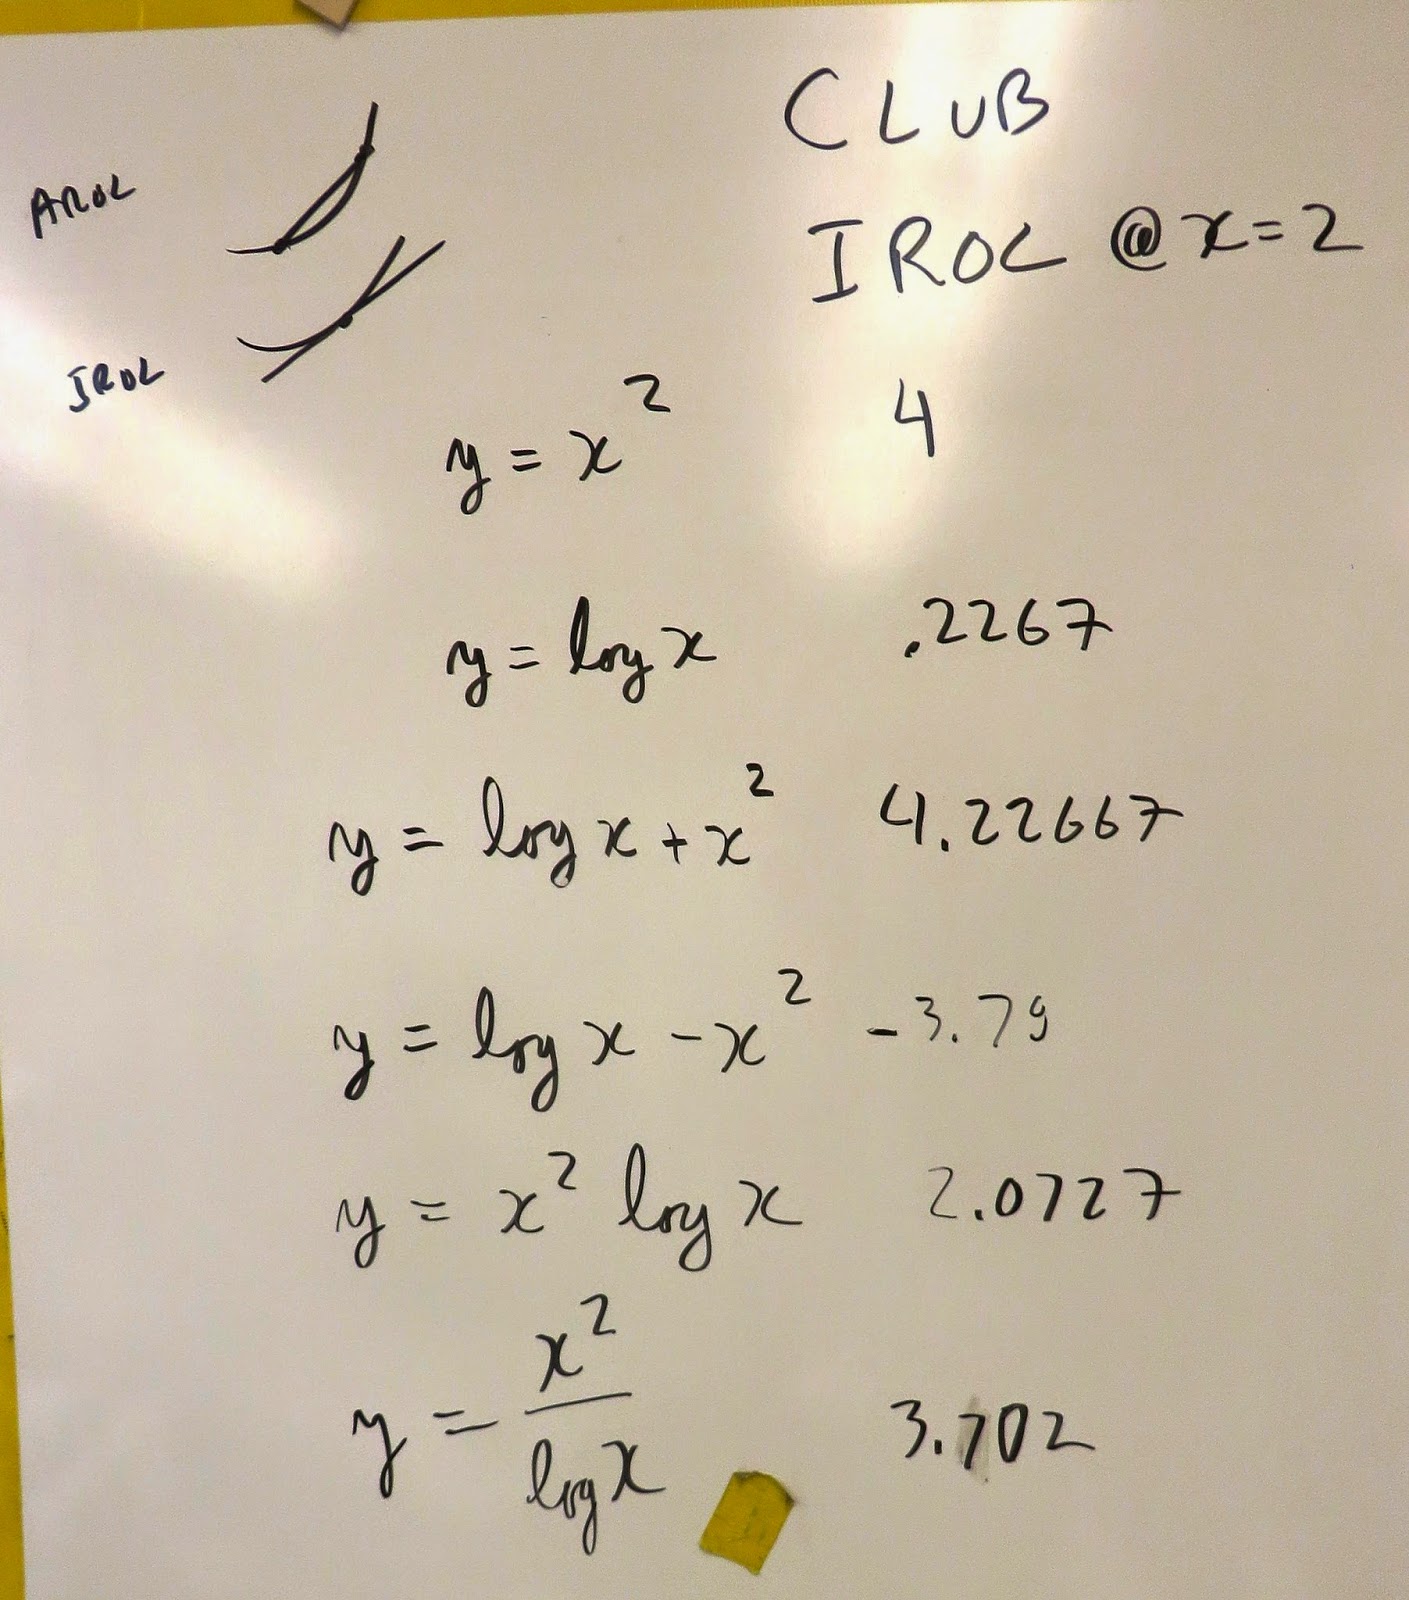 CLUB
AROC
IROC @ x = 2
IROC
y = x² 4
y = log x .2267
y = log x + x² 4.22667
y = log x - x² -3.79
y = x² log x 2.0727
y = x² / log x 3.702